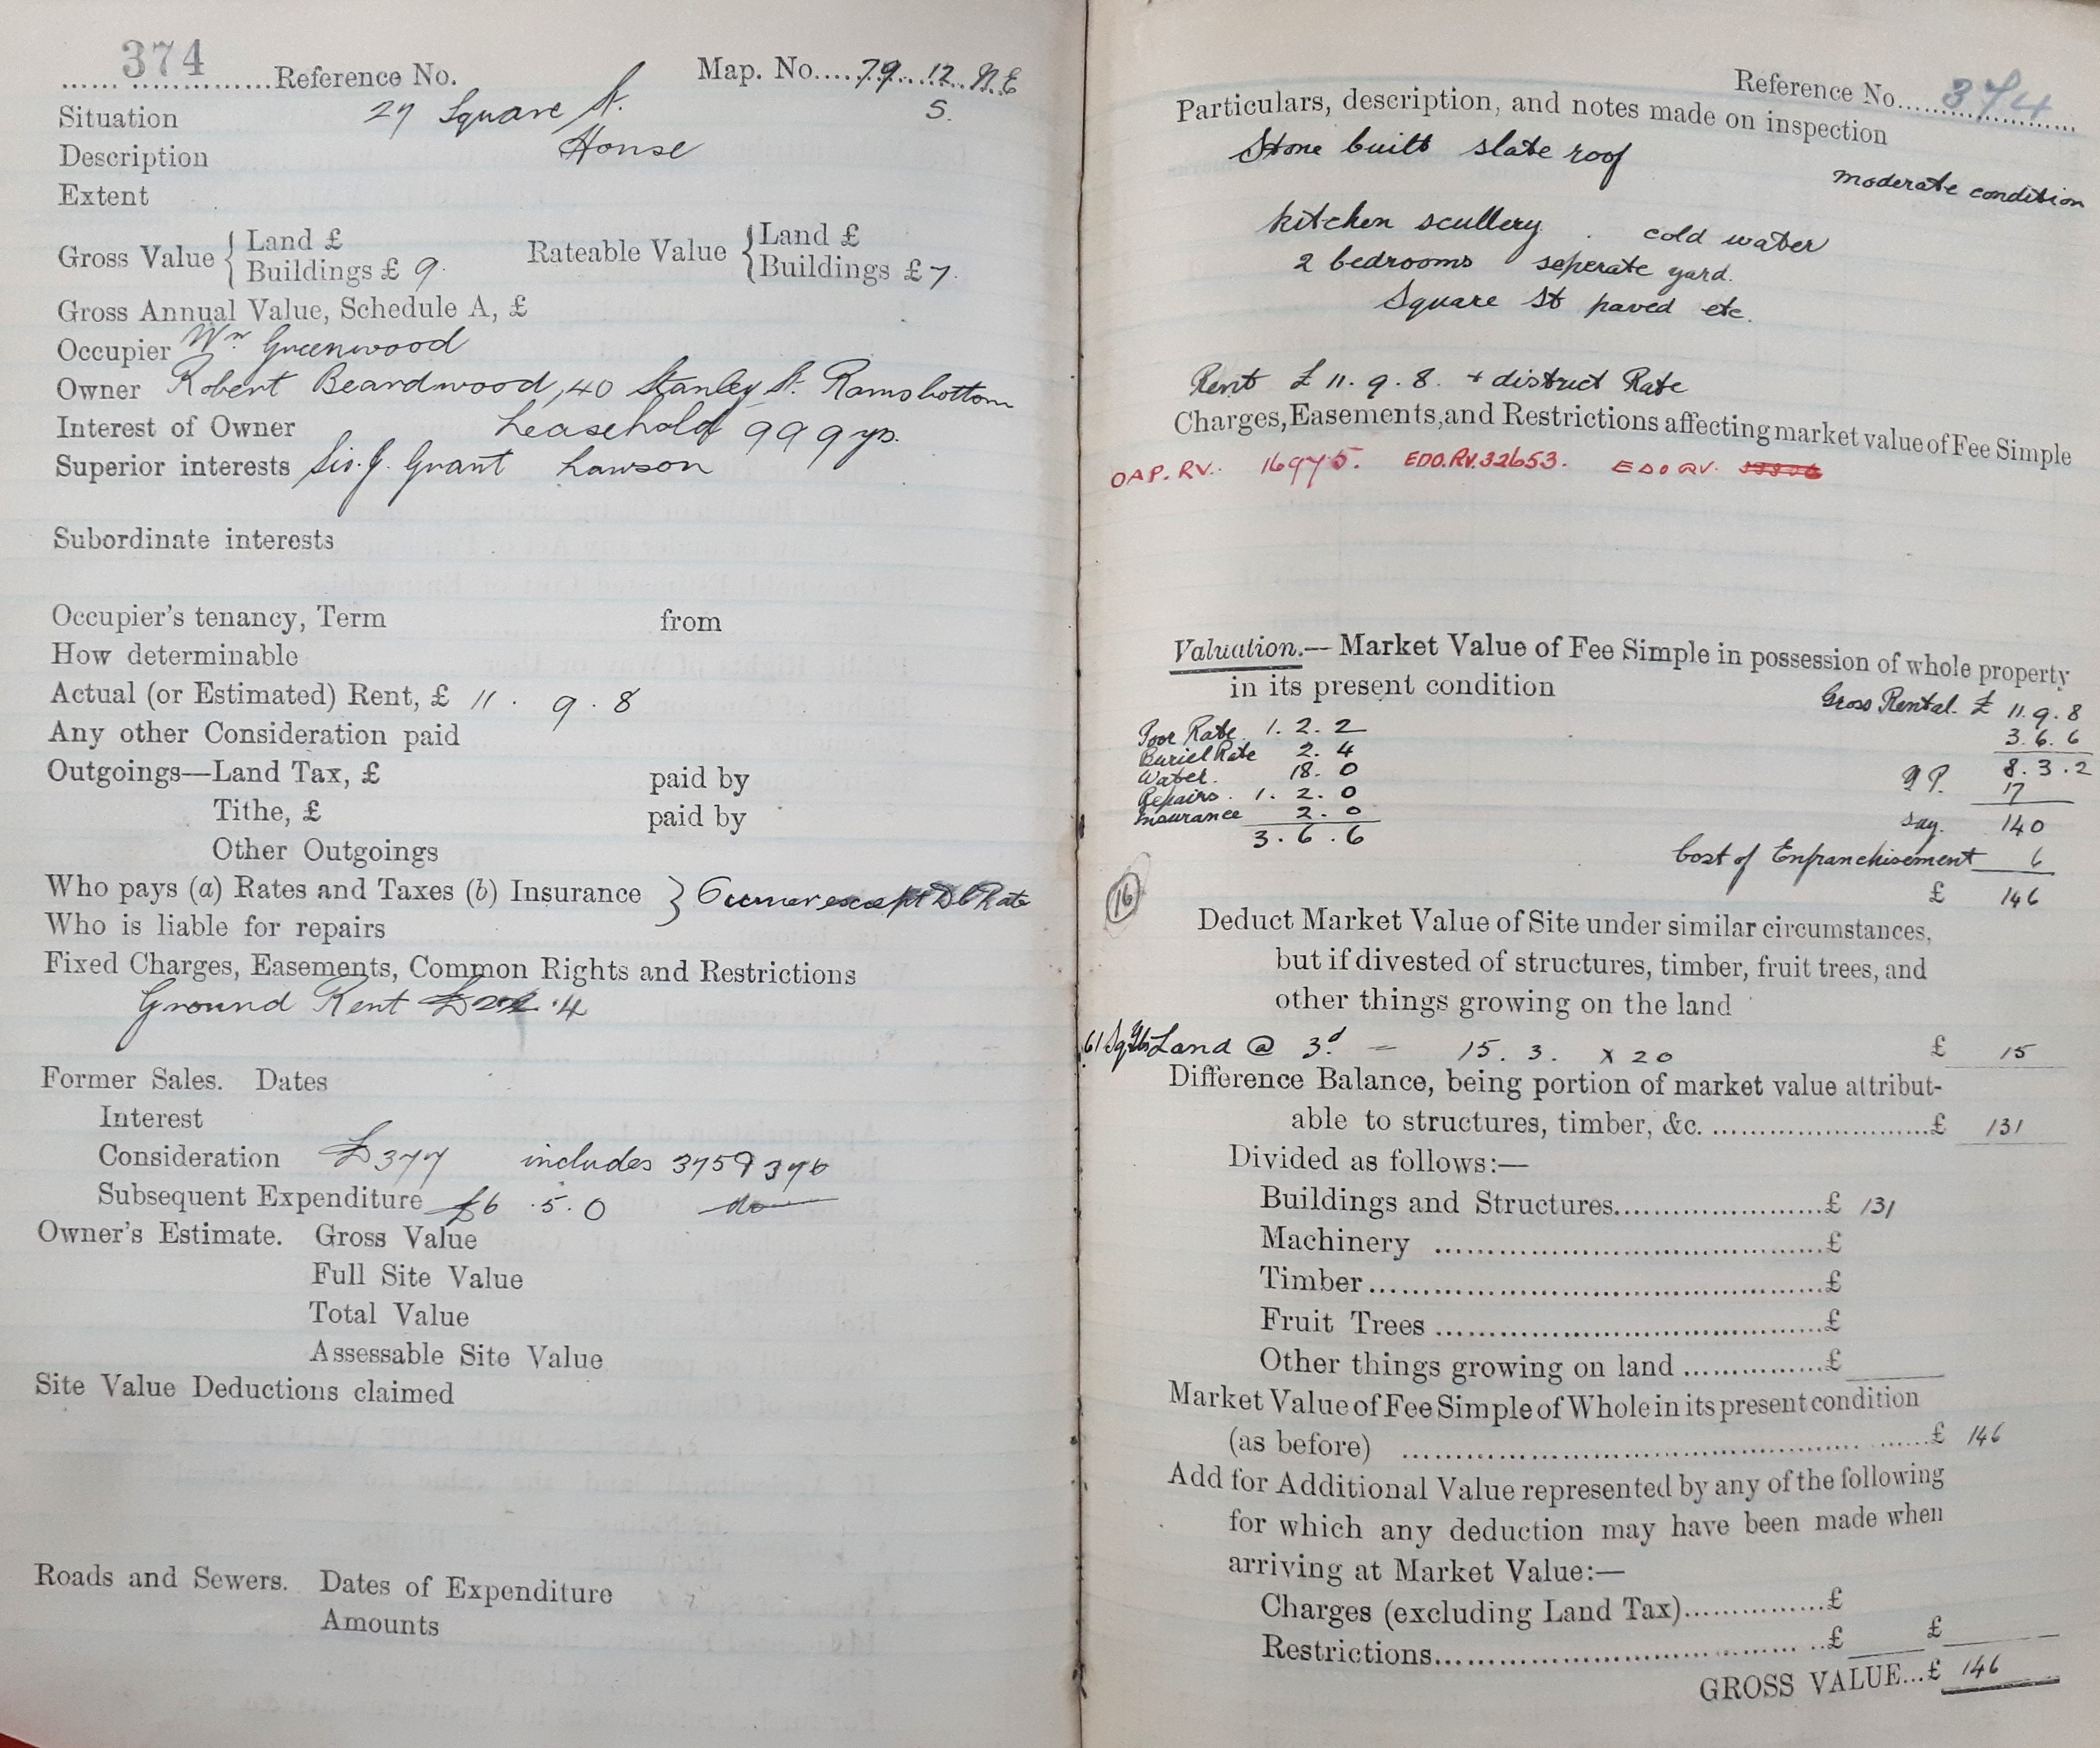 374 Reference No. Map. No. 79. 12. N.E
S.
Situation 27 Square St.
Description House
Extent
Gross Value { Land £ Rateable Value { Land £
Buildings £ 9. Buildings £ 7.
Gross Annual Value, Schedule A, £
Occupier Wm Greenwood
Owner Robert Beardwood, 40 Stanley St. Ramsbottom
Interest of Owner Leasehold 999 yrs.
Superior interests Sir. J. Grant Lawson
Subordinate interests
Occupier's tenancy, Term from
How determinable
Actual (or Estimated) Rent, £ 11. 9. 8
Any other Consideration paid
Outgoings—Land Tax, £ paid by
Tithe, £ paid by
Other Outgoings
Who pays (a) Rates and Taxes (b) Insurance } Owner except Dt Rate
Who is liable for repairs
Fixed Charges, Easements, Common Rights and Restrictions
Ground Rent
Former Sales. Dates
Interest
Consideration £377 includes 375 & 376
Subsequent Expenditure £6. 5. 0 do
Owner's Estimate. Gross Value
Full Site Value
Total Value
Assessable Site Value
Site Value Deductions claimed
Roads and Sewers. Dates of Expenditure
Amounts
Reference No. 374
Particulars, description, and notes made on inspection
Stone built slate roof
moderate condition
kitchen scullery. cold water
2 bedrooms seperate yard.
Square St paved etc.
Rent £ 11. 9. 8. + district Rate
Charges, Easements, and Restrictions affecting market value of Fee Simple
OAP. RV. 16975. EDO. RV. 32653. EDO RV.
Valuation.— Market Value of Fee Simple in possession of whole property
in its present condition
Gross Rental. £ 11. 9. 8
Poor Rate. 1. 2. 2 3. 6. 6
Buriel Rate 2. 4 8. 3. 2
Water. 18. 0 YP. 17
Repairs. 1. 2. 0
Insurance 2. 0 say. 140
3. 6. 6
Cost of Enfranchisement 6
16 £ 146
Deduct Market Value of Site under similar circumstances,
but if divested of structures, timber, fruit trees, and
other things growing on the land
61 Sq Yds Land @ 3d = 15. 3. x 20 £ 15
Difference Balance, being portion of market value attribut-
able to structures, timber, &c. £ 131
Divided as follows:—
Buildings and Structures £ 131
Machinery £
Timber £
Fruit Trees £
Other things growing on land £
Market Value of Fee Simple of Whole in its present condition
(as before) £ 146
Add for Additional Value represented by any of the following
for which any deduction may have been made when
arriving at Market Value:—
Charges (excluding Land Tax) £
Restrictions £ £
GROSS VALUE...£ 146